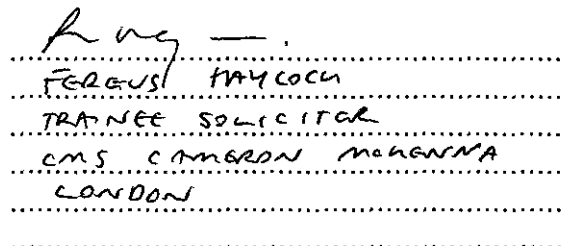 FERGUS HAYCOCK
TRAINEE SOLICITOR
CMS CAMERON MCKENNA
LONDON